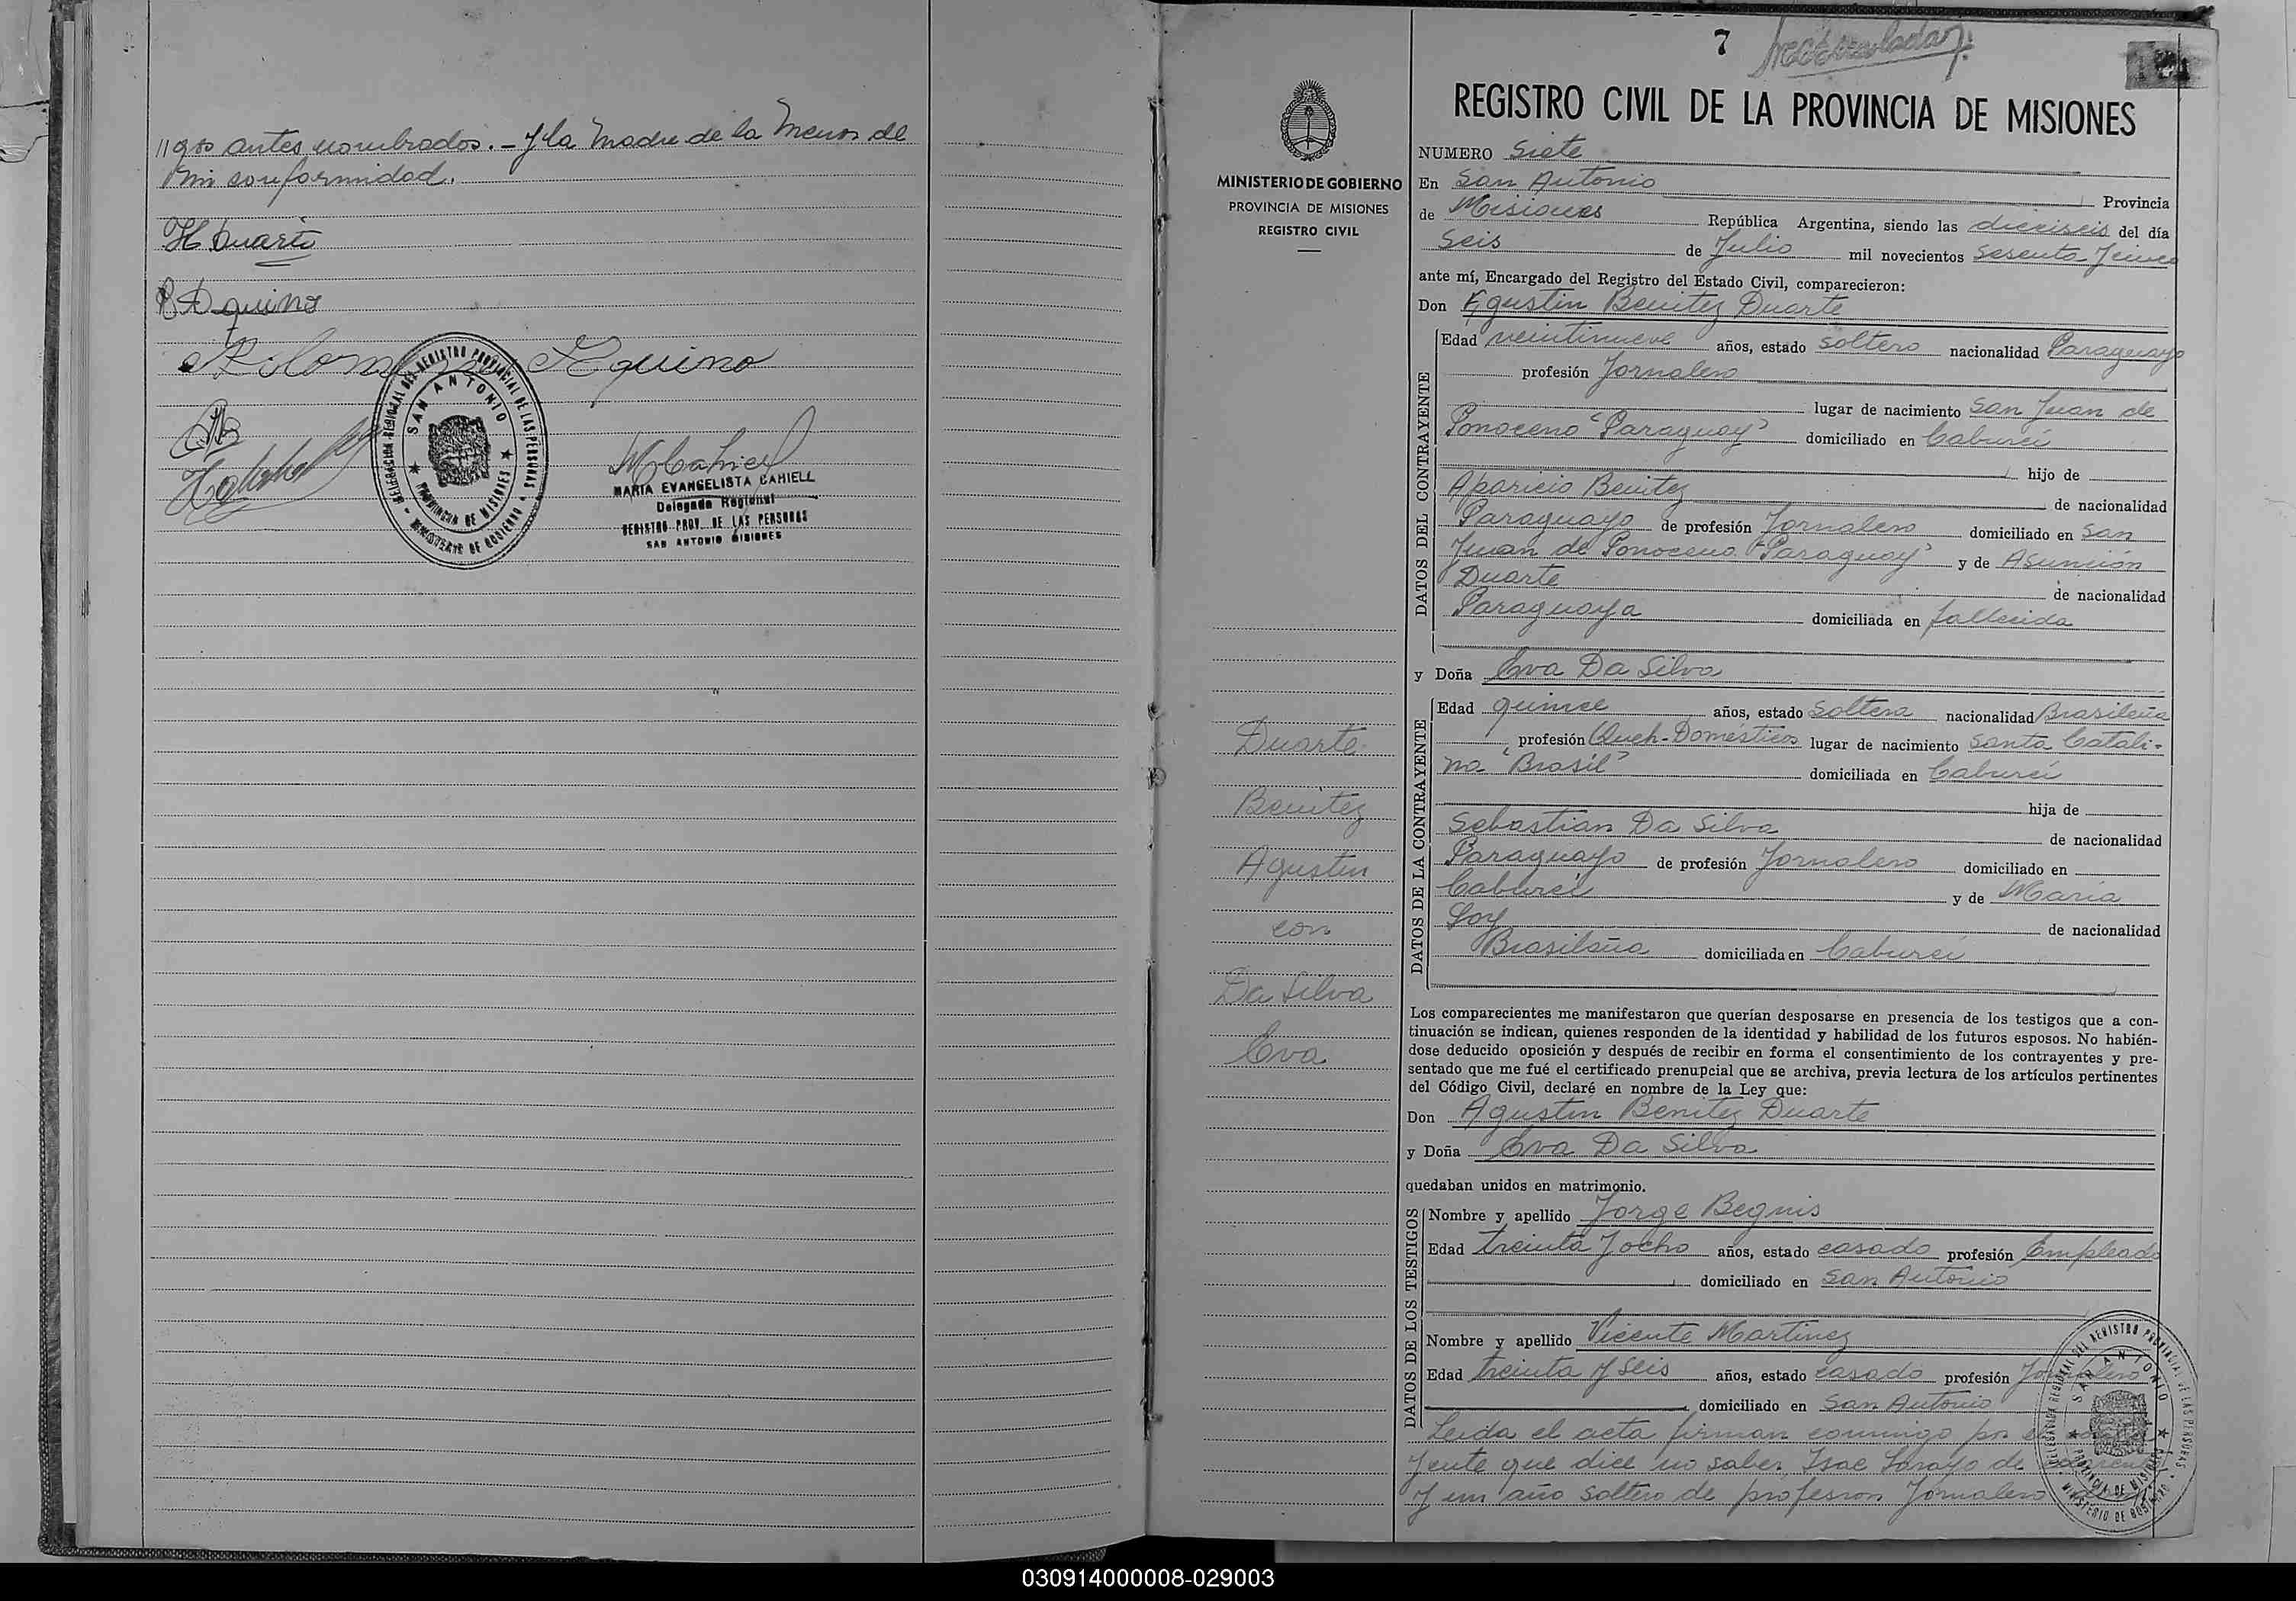 //gos antes nombrados.- y la Madre de la Menor de
mi conformidad.
H Duarte
R Aquino
Aquino
DELEGACIÓN REGIONAL DEL REGISTRO PROVINCIAL DE LAS PERSONAS
SAN ANTONIO
PROVINCIA DE MISIONES
MINISTERIO DE GOBIERNO
MARIA EVANGELISTA CAHIELL
Delegada Regional
REGISTRO PROV. DE LAS PERSONAS
SAN ANTONIO MISIONES
MINISTERIO DE GOBIERNO
PROVINCIA DE MISIONES
REGISTRO CIVIL
Duarte
Benitez
Agustin
con
Da Silva
Eva
7
REGISTRO CIVIL DE LA PROVINCIA DE MISIONES
NUMERO Siete
En San Antonio Provincia
de Misiones República Argentina, siendo las dieciseis del día
Seis de Julio mil novecientos Sesenta y cinco
ante mí, Encargado del Registro del Estado Civil, comparecieron:
Don Agustin Benitez Duarte
DATOS DEL CONTRAYENTE
Edad veintinueve años, estado soltero nacionalidad Paraguayo
profesión Jornalero
lugar de nacimiento San Juan de
"Paraguay" domiciliado en Cabureí
hijo de
Aparicio Benitez de nacionalidad
Paraguayo de profesión Jornalero domiciliado en San
Juan de "Paraguay" y de Asunción
Duarte de nacionalidad
Paraguaya domiciliada en fallecida
y Doña Eva Da Silva
DATOS DE LA CONTRAYENTE
Edad quince años, estado Soltera nacionalidad Brasileña
profesión Queh-Domésticos lugar de nacimiento Santa Catali-
na "Brasil" domiciliada en Cabureí
hija de
Sebastian Da Silva de nacionalidad
Paraguayo de profesión Jornalero domiciliado en
Cabureí y de Maria
Loy de nacionalidad
Brasileña domiciliada en Cabureí
Los comparecientes me manifestaron que querían desposarse en presencia de los testigos que a con-
tinuación se indican, quienes responden de la identidad y habilidad de los futuros esposos. No habién-
dose deducido oposición y después de recibir en forma el consentimiento de los contrayentes y pre-
sentado que me fué el certificado prenupcial que se archiva, previa lectura de los artículos pertinentes
del Código Civil, declaré en nombre de la Ley que:
Don Agustin Benitez Duarte
y Doña Eva Da Silva
quedaban unidos en matrimonio.
DATOS DE LOS TESTIGOS
Nombre y apellido Jorge Begnis
Edad treinta y ocho años, estado casado profesión Empleado
domiciliado en San Antonio
Nombre y apellido Vicente Martinez
Edad treinta y seis años, estado casado profesión Jornalero
domiciliado en San Antonio
Leida el acta firman conmigo por el
yente que dice no saber, Isac de
y un año soltero de profesion Jornalero
DELEGACIÓN REGIONAL DEL REGISTRO PROVINCIAL DE LAS PERSONAS
SAN ANTONIO
PROVINCIA DE MISIONES
MINISTERIO DE GOBIERNO
030914000008-029003